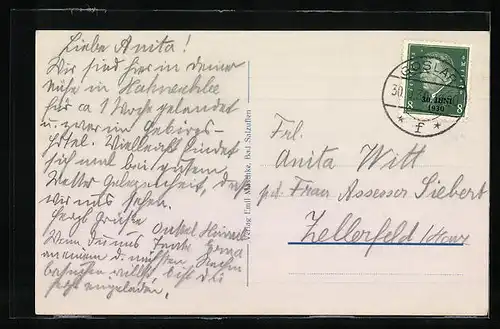 Liebe Anita!
Wir sind hier in deiner
Nähe in Hahnenklee
für ca 1 Woche gelandet
u. zwar im Gebirgs-
hotel. Vielleicht findet
sich mal bei gutem
Wetter Gelegenheit, daß
wir uns sehen.
Herzl. Grüße Onkel Heinrich
Wenn du uns Tante Erna
an einem d. nächsten
besuchen willst, bist du
herzl. eingeladen.
Verlag Emil Bad Salzuflen
GOSLAR
30.
* f *
8 8
30. JUNI
1930
Frl.
Anita Witt
Frau Assessor Siebert
Zellerfeld /Harz